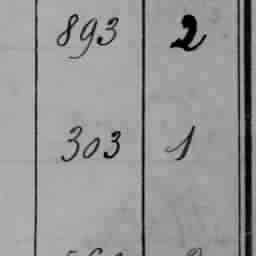 893 2
303 1